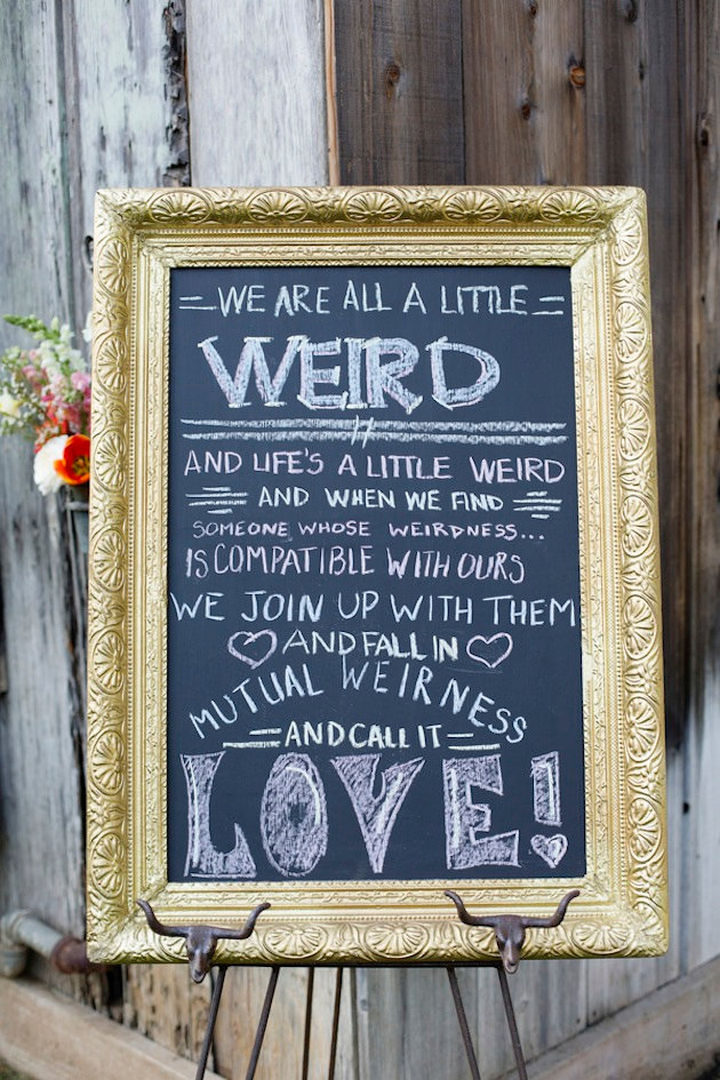 WE ARE ALL A LITTLE
WEIRD
AND LIFE'S A LITTLE WEIRD
AND WHEN WE FIND
SOMEONE WHOSE WEIRDNESS...
IS COMPATIBLE WITH OURS
WE JOIN UP WITH THEM
AND FALL IN
MUTUAL WEIRNESS
AND CALL IT
LOVE!